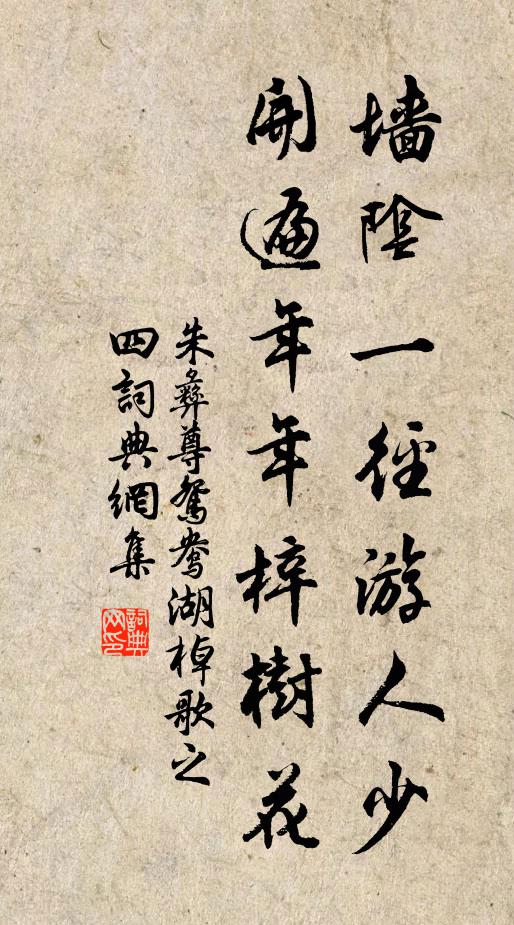 墙陰一徑游人少
開遍年年梓樹花
朱彝尊鴛鴦湖棹歌之
四詞典網集
詞典网印